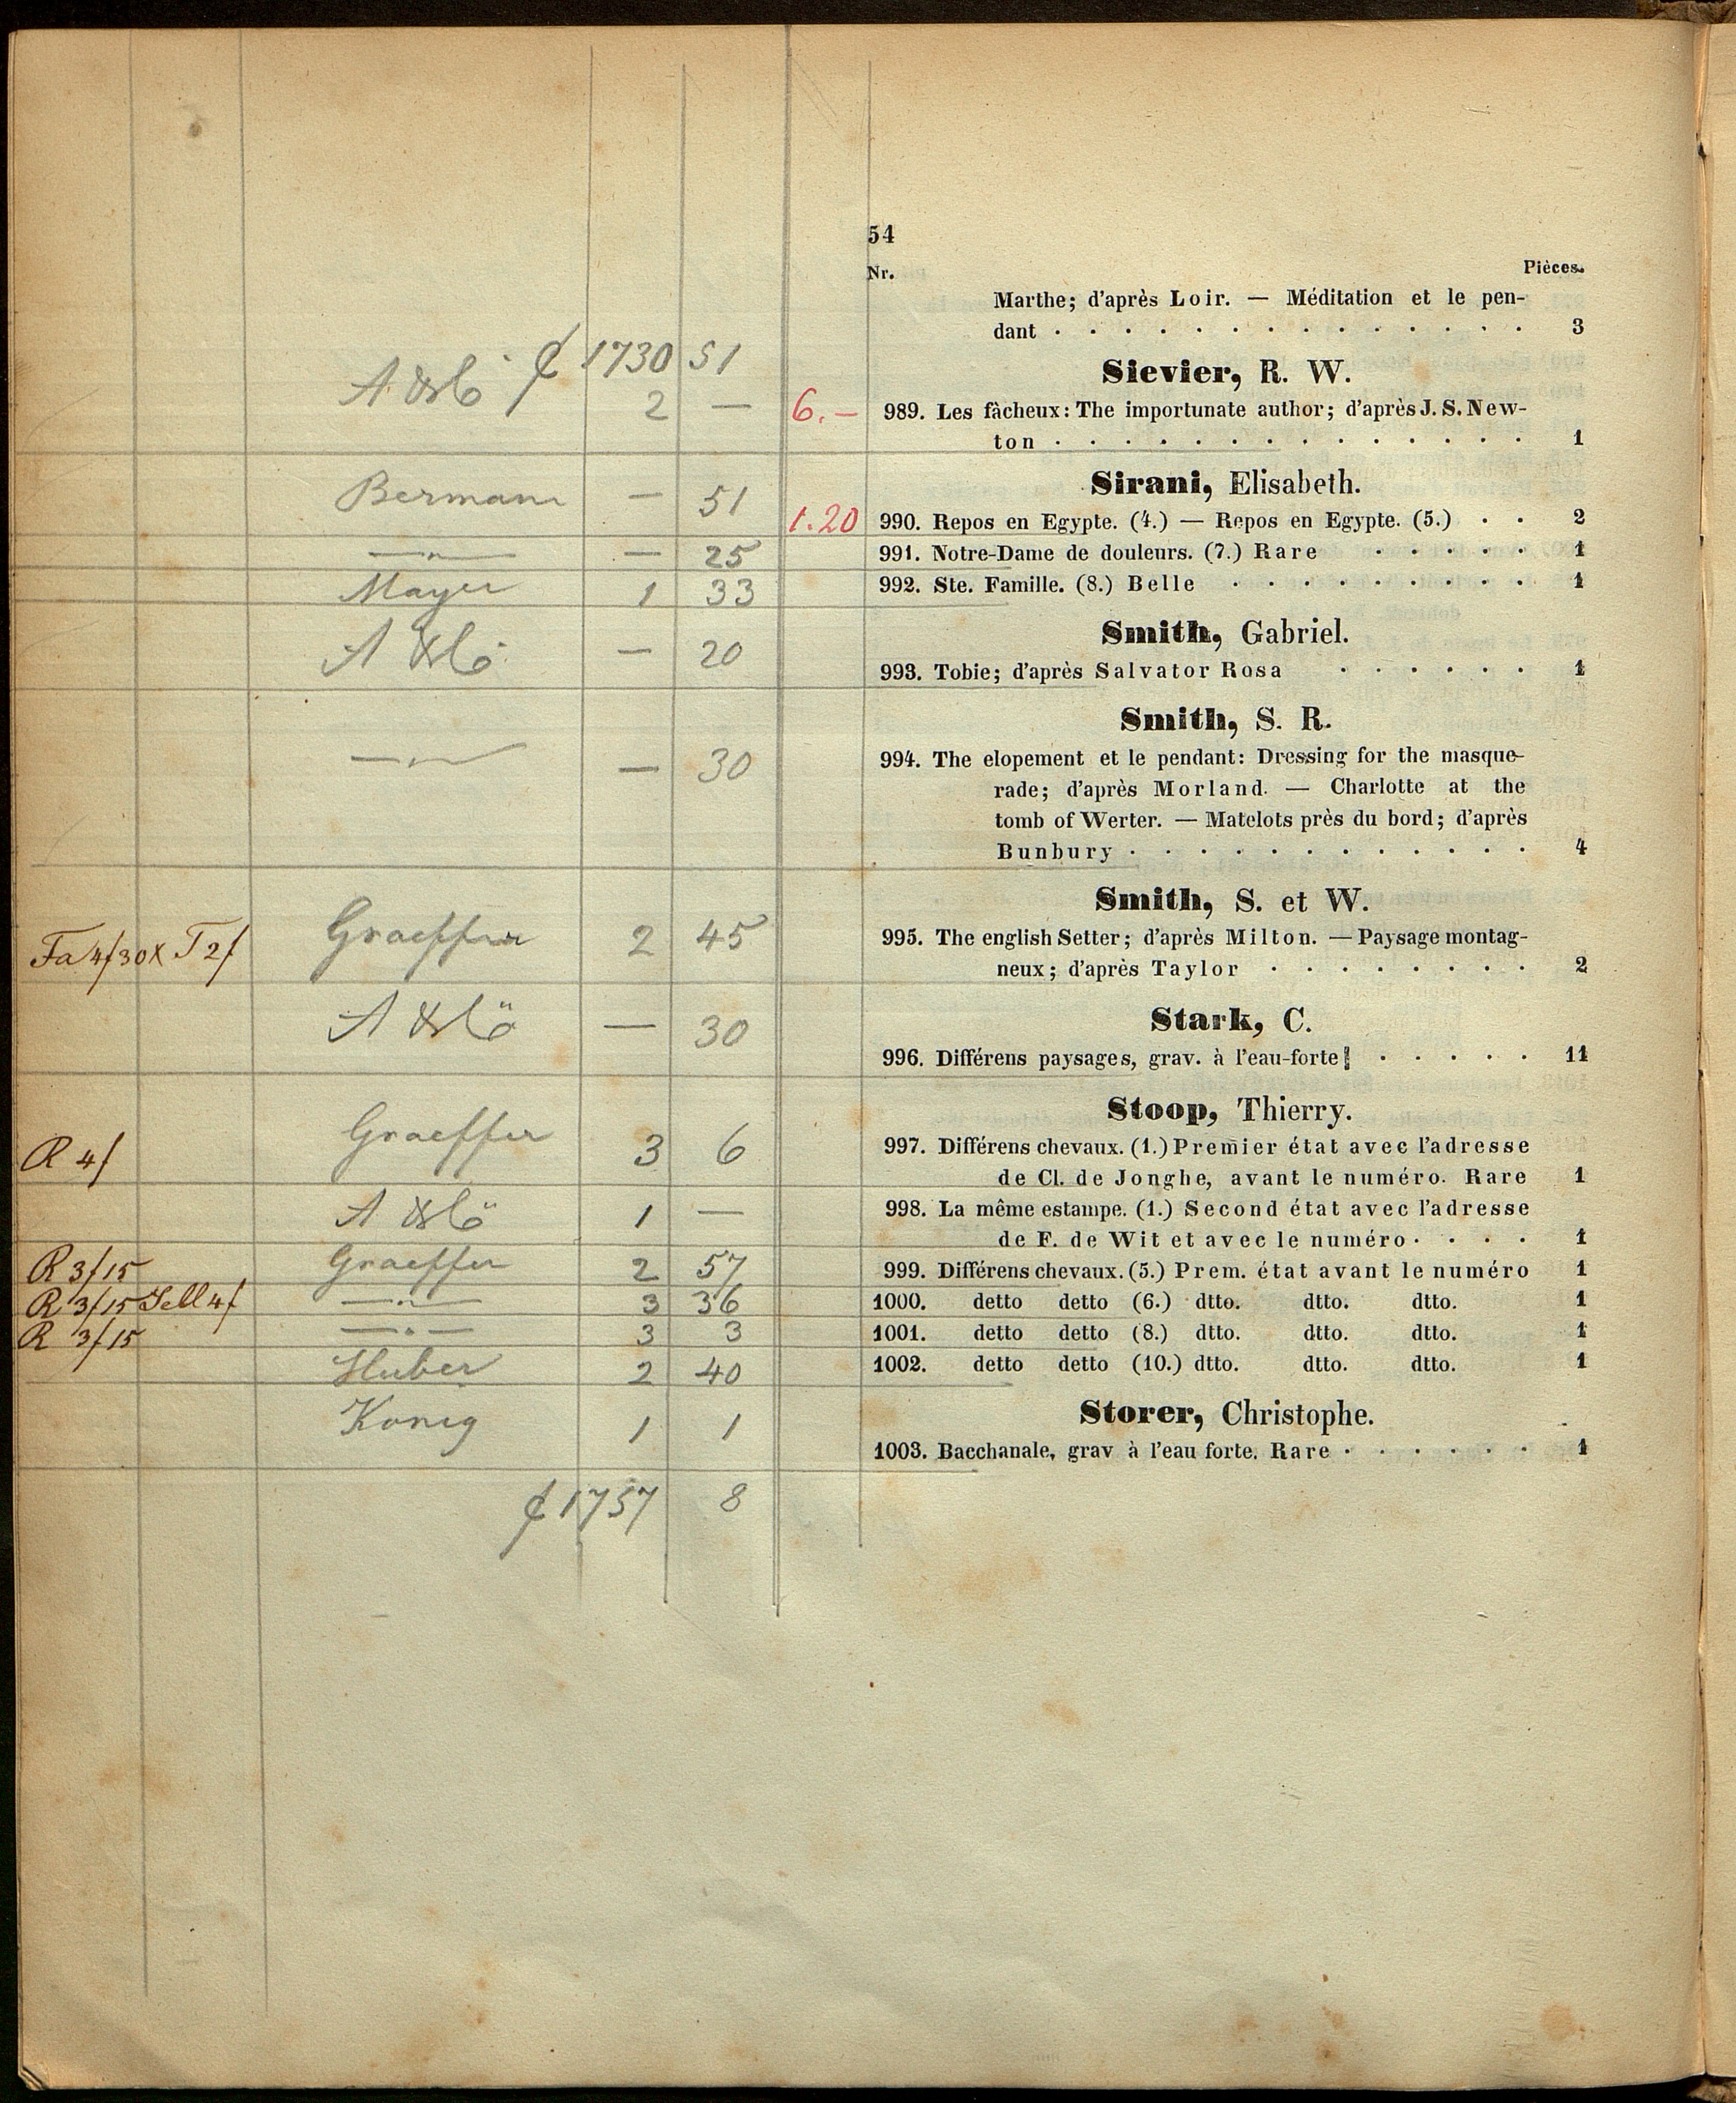 54
Nr. Pièces.
Marthe; d'après Loir. — Méditation et le pen-
dant . . . . . . . . . . . . . . 3
1730 51
Sievier, R. W.
2 — 6.— 989. Les fâcheux: The importunate author; d'après J. S. New-
ton . . . . . . . . . . . . . . 1
Sirani, Elisabeth.
Bermann — 51 1.20 990. Repos en Egypte. (4.) — Repos en Egypte. (5.) . . 2
—"— — 25 991. Notre-Dame de douleurs. (7.) Rare . . . . . 1
Mayer 1 33 992. Ste. Famille. (8.) Belle . . . . . . . . . 1
Smith, Gabriel.
— 20 993. Tobie; d'après Salvator Rosa . . . . . . 1
Smith, S. R.
—"— — 30 994. The elopement et le pendant: Dressing for the masque-
rade; d'après Morland. — Charlotte at the
tomb of Werter. — Matelots près du bord; d'après
Bunbury . . . . . . . . . . . . 4
Smith, S. et W.
Fa 4f30x T 2f Graeffer 2 45 995. The english Setter; d'après Milton. — Paysage montag-
neux; d'après Taylor . . . . . . . . 2
Stark, C.
— 30 996. Différens paysages, grav. à l'eau-forte . . . . . 11
Stoop, Thierry.
R 4f Graeffer 3 6 997. Différens chevaux. (1.) Premier état avec l'adresse
de Cl. de Jonghe, avant le numéro. Rare 1
1 — 998. La même estampe. (1.) Second état avec l'adresse
de F. de Wit et avec le numéro . . . . 1
R 3f15 Graeffer 2 57 999. Différens chevaux. (5.) Prem. état avant le numéro 1
R 3f15 Sell 4f —"— 3 36 1000. detto detto (6.) dtto. dtto. dtto. 1
R 3f15 —"— 3 3 1001. detto detto (8.) dtto. dtto. dtto. 1
Huber 2 40 1002. detto detto (10.) dtto. dtto. dtto. 1
Storer, Christophe.
König 1 1 1003. Bacchanale, grav à l'eau forte. Rare . . . . . . 1
1757 8